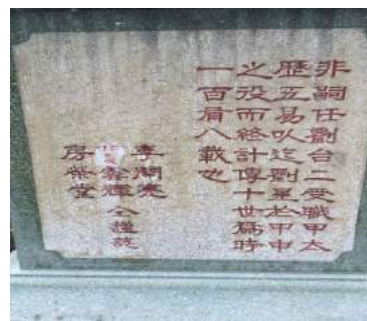 非嗣任劉台二受職甲太
歷五易以迄劉於甲申
之役而終計傳十世爲時
一百有八載也
李開
雲輝 仝謹誌
房榮堂